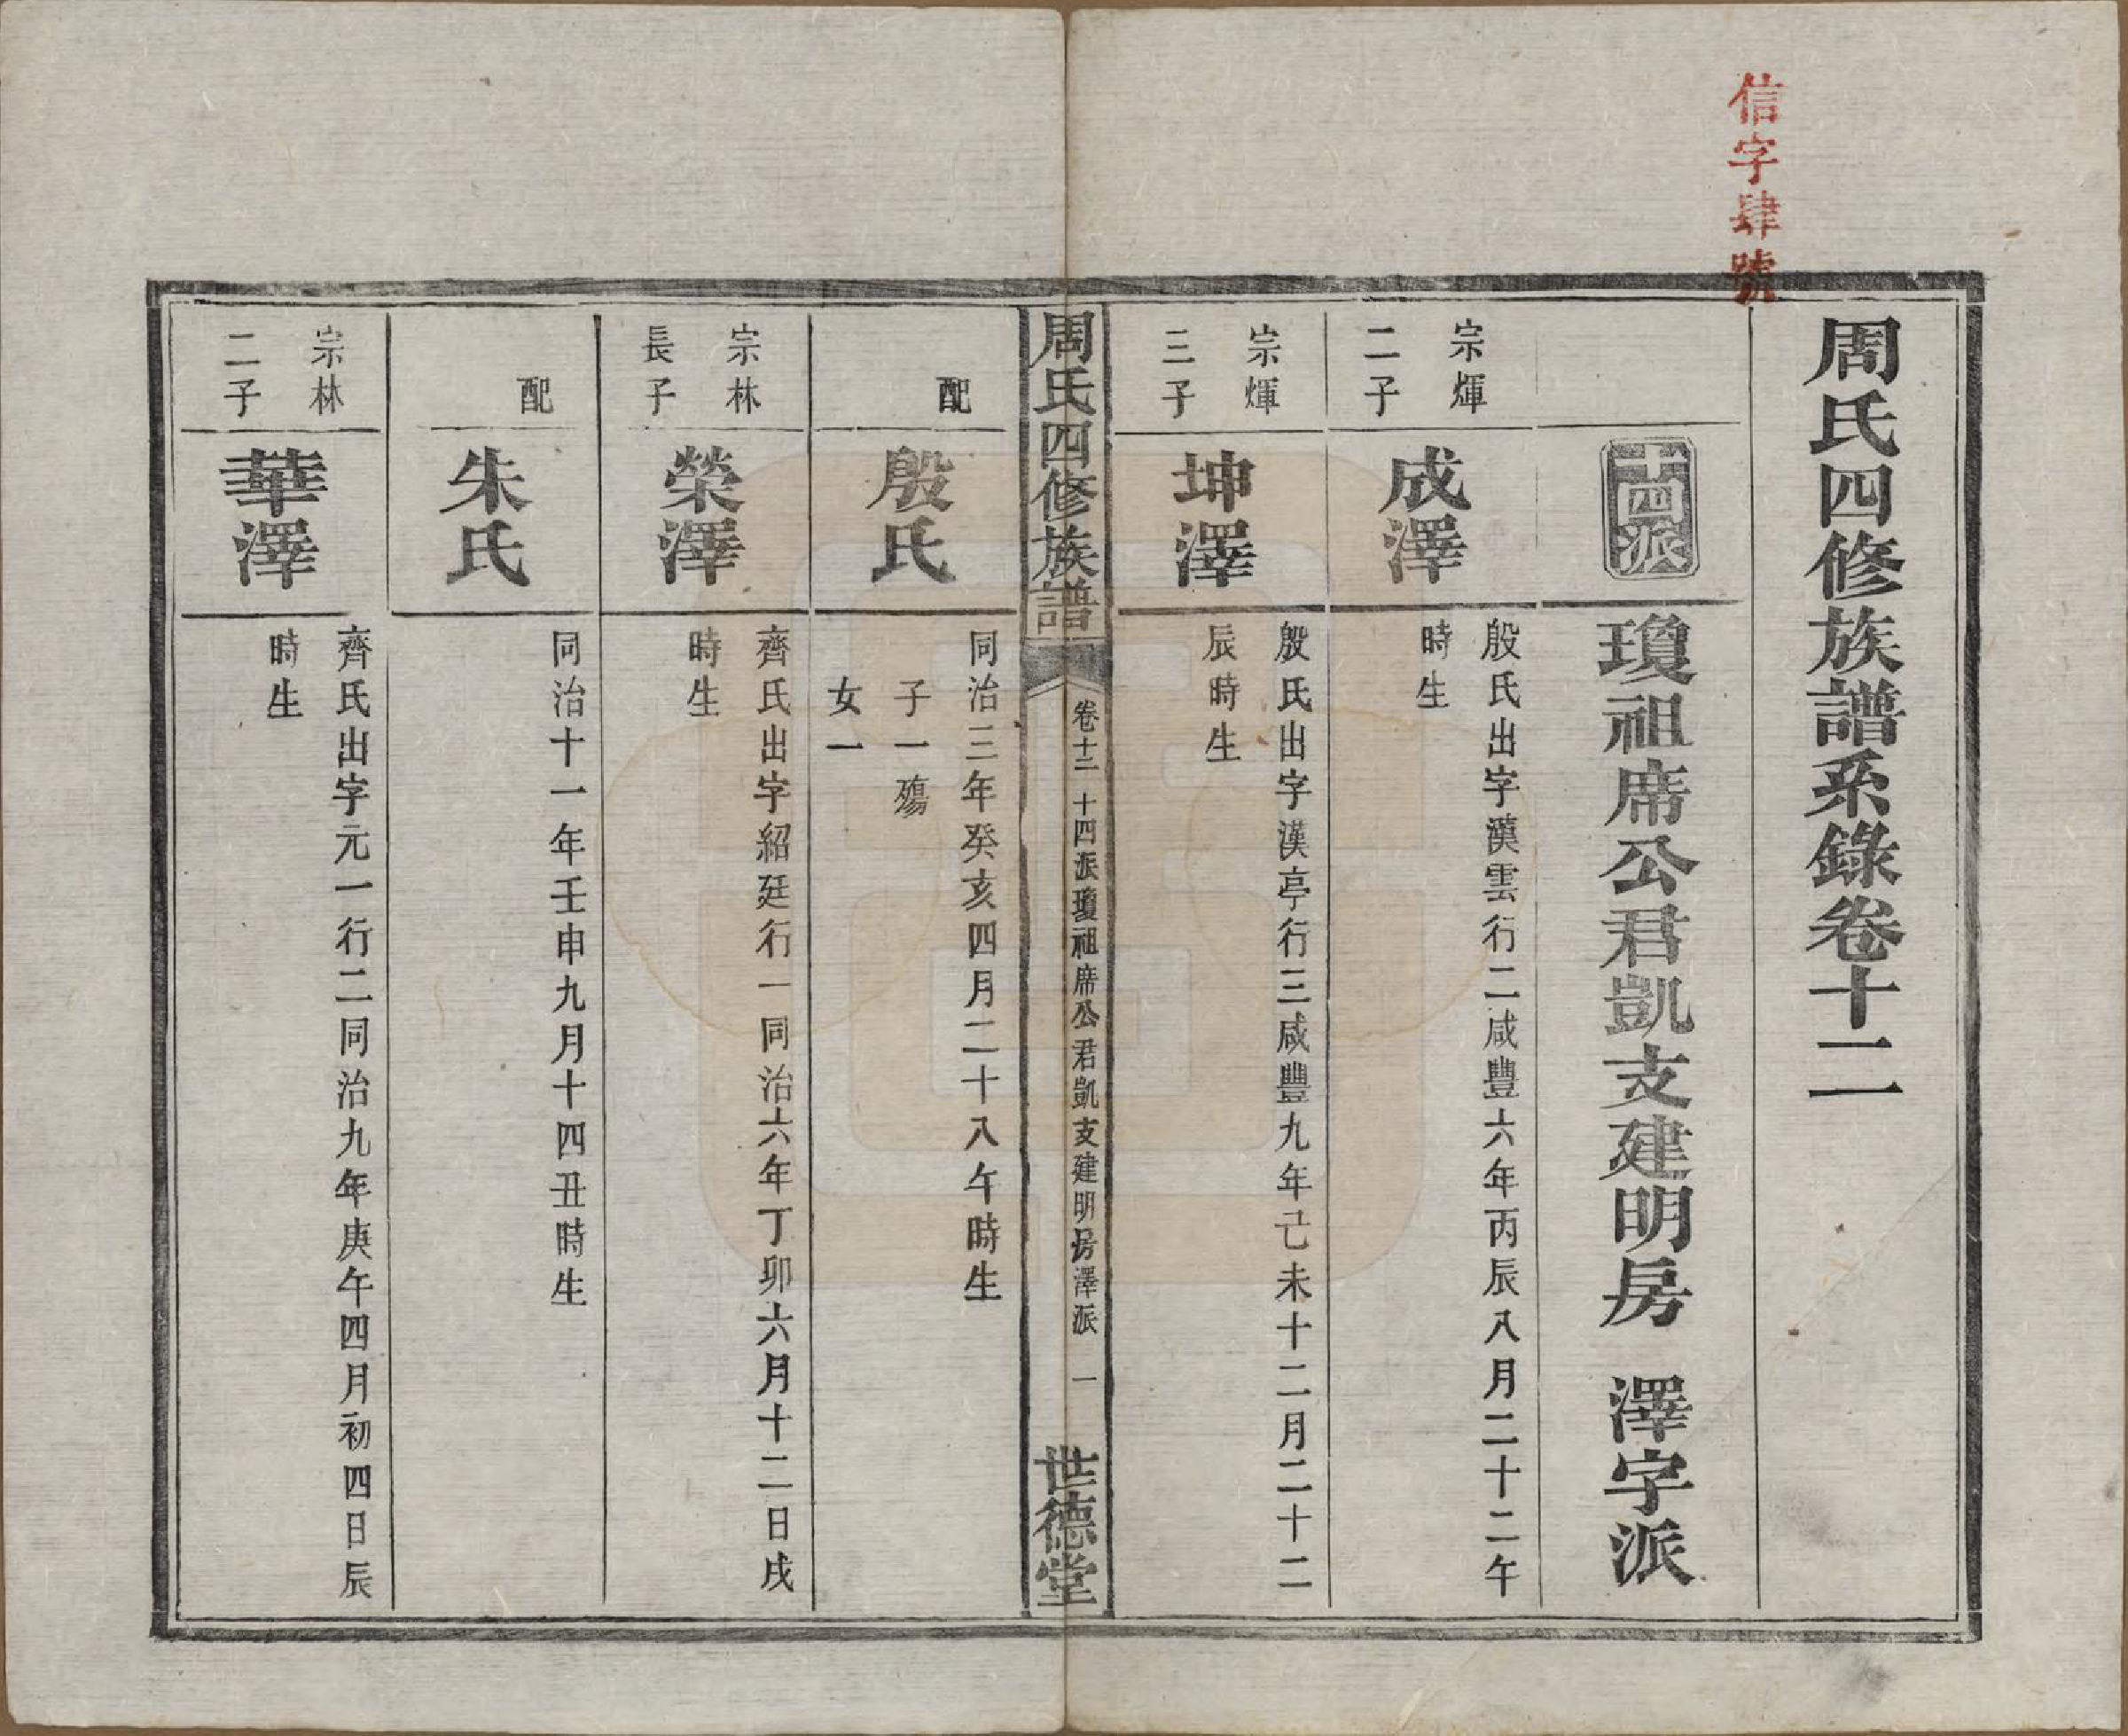 信字肆號
周氏四修族譜系錄卷十二
十四派
瓊祖席公君凱支建明房 澤字派
宗煇
二子
成澤
殷氏出字漢雲行二咸豐六年丙辰八月二十二午
時生
宗煇
三子
坤澤
殷氏出字漢亭行三咸豐九年己未十二月二十二
辰時生
周氏四修族譜
卷十二 十四派瓊祖席公君凱支建明房澤派 一
世德堂
配
殷氏
同治三年癸亥四月二十八午時生
子一殤
女一
宗林
長子
榮澤
齊氏出字紹廷行一同治六年丁卯六月十二日戌
時生
配
朱氏
同治十一年壬申九月十四丑時生
宗林
二子
華澤
齊氏出字元一行二同治九年庚午四月初四日辰
時生